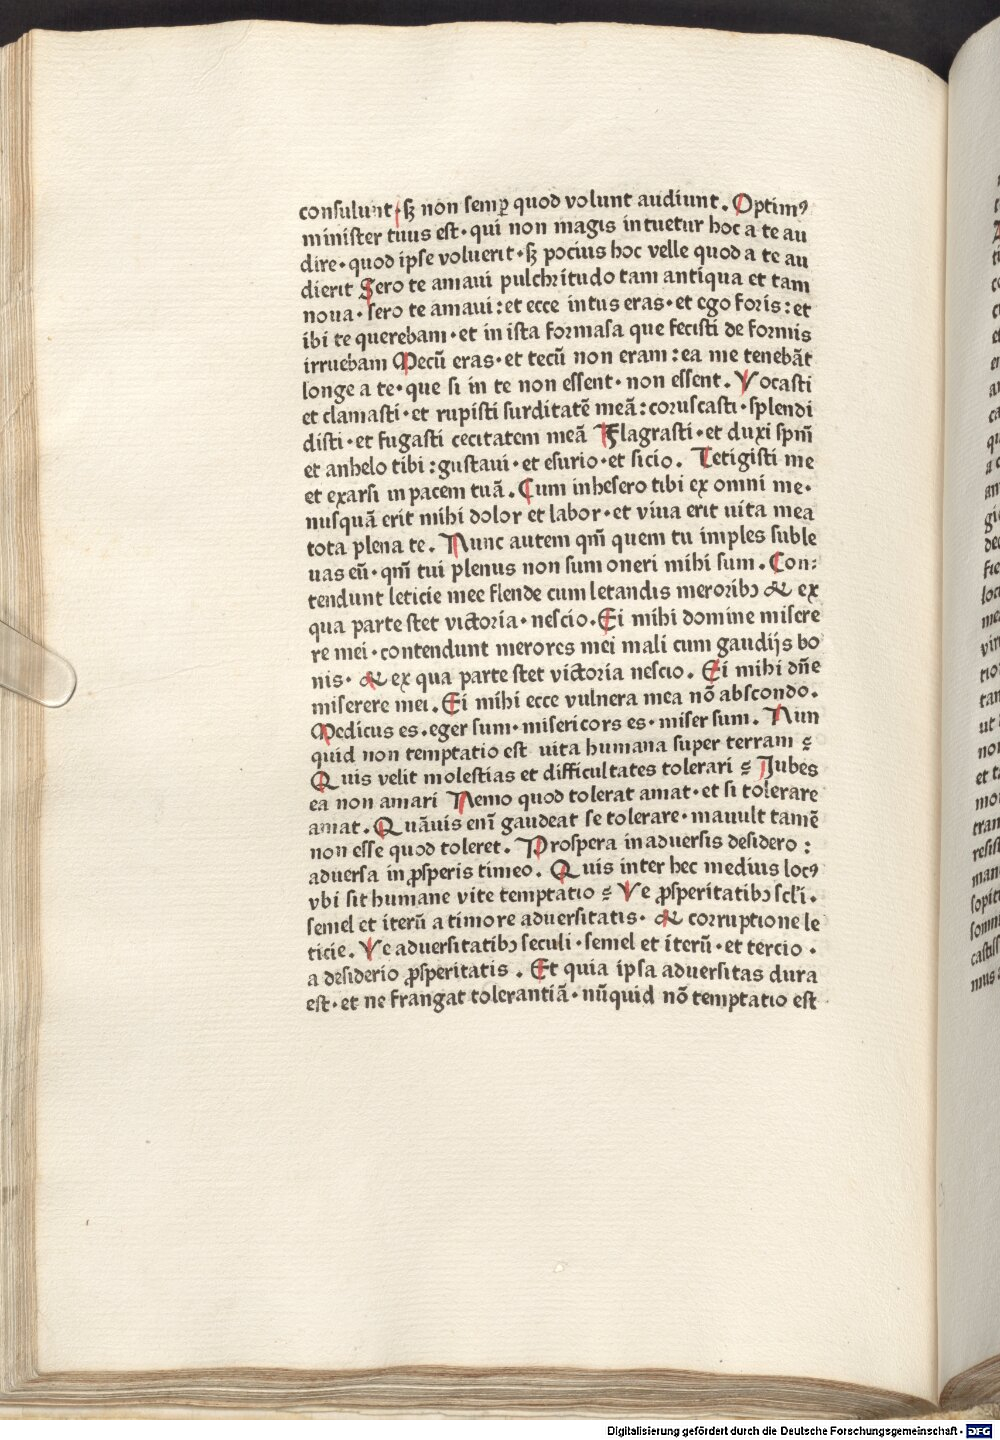 consulunt· sꝫ non semꝑ quod volunt audiunt. Optimꝰ
minister tuus est· qui non magis intuetur hoc a te au
dire· quod ipse voluerit· sꝫ pocius hoc velle quod a te au
dierit Sero te amaui pulchritudo tam antiqua et tam
noua· sero te amaui: et ecce intus eras· et ego foris: et
ibi te querebam· et in ista formasa que fecisti de formis
irruebam Mecū eras· et tecū non eram: ea me tenebāt
longe a te· que si in te non essent· non essent. Vocasti
et clamasti· et rupisti surditatē meā: coruscasti· splendi
disti· et fugasti cecitatem meā Flagrasti· et duxi spm̄
et anhelo tibi: gustaui· et esurio· et sicio. Tetigisti me
et exarsi in pacem tuā. Cum inhesero tibi ex omni me·
nusquā erit mihi dolor et labor· et viua erit uita mea
tota plena te. Nunc autem qm̄ quem tu imples suble
uas eū· qm̄ tui plenus non sum oneri mihi sum. Con:
tendunt leticie mee flende cum letandis meroribꝫ & ex
qua parte stet victoria· nescio. Ei mihi domine misere
re mei· contendunt merores mei mali cum gaudijs bo
nis· & ex qua parte stet victoria nescio. Ei mihi dn̄e
miserere mei. Ei mihi ecce vulnera mea nō abscondo.
Medicus es. eger sum· misericors es· miser sum. Nun
quid non temptatio est uita humana super terram ?
Quis velit molestias et difficultates tolerari ? Jubes
ea non amari Nemo quod tolerat amat· et si tolerare
amat. Quāuis enī gaudeat se tolerare· mauult tamē
non esse quod toleret. Prospera in aduersis desidero:
aduersa in ꝓsperis timeo. Quis inter hec medius locꝰ
vbi sit humane vite temptatio ? Ve ꝓsperitatibꝫ scl̄i·
semel et iterū a timore aduersitatis· & corruptione le
ticie. Ve aduersitatibꝫ seculi· semel et iterū· et tercio·
a desiderio ꝓsperitatis. Et quia ipsa aduersitas dura
est· et ne frangat tolerantiā· nūquid nō temptatio est
Digitalisierung gefördert durch die Deutsche Forschungsgemeinschaft - DFG